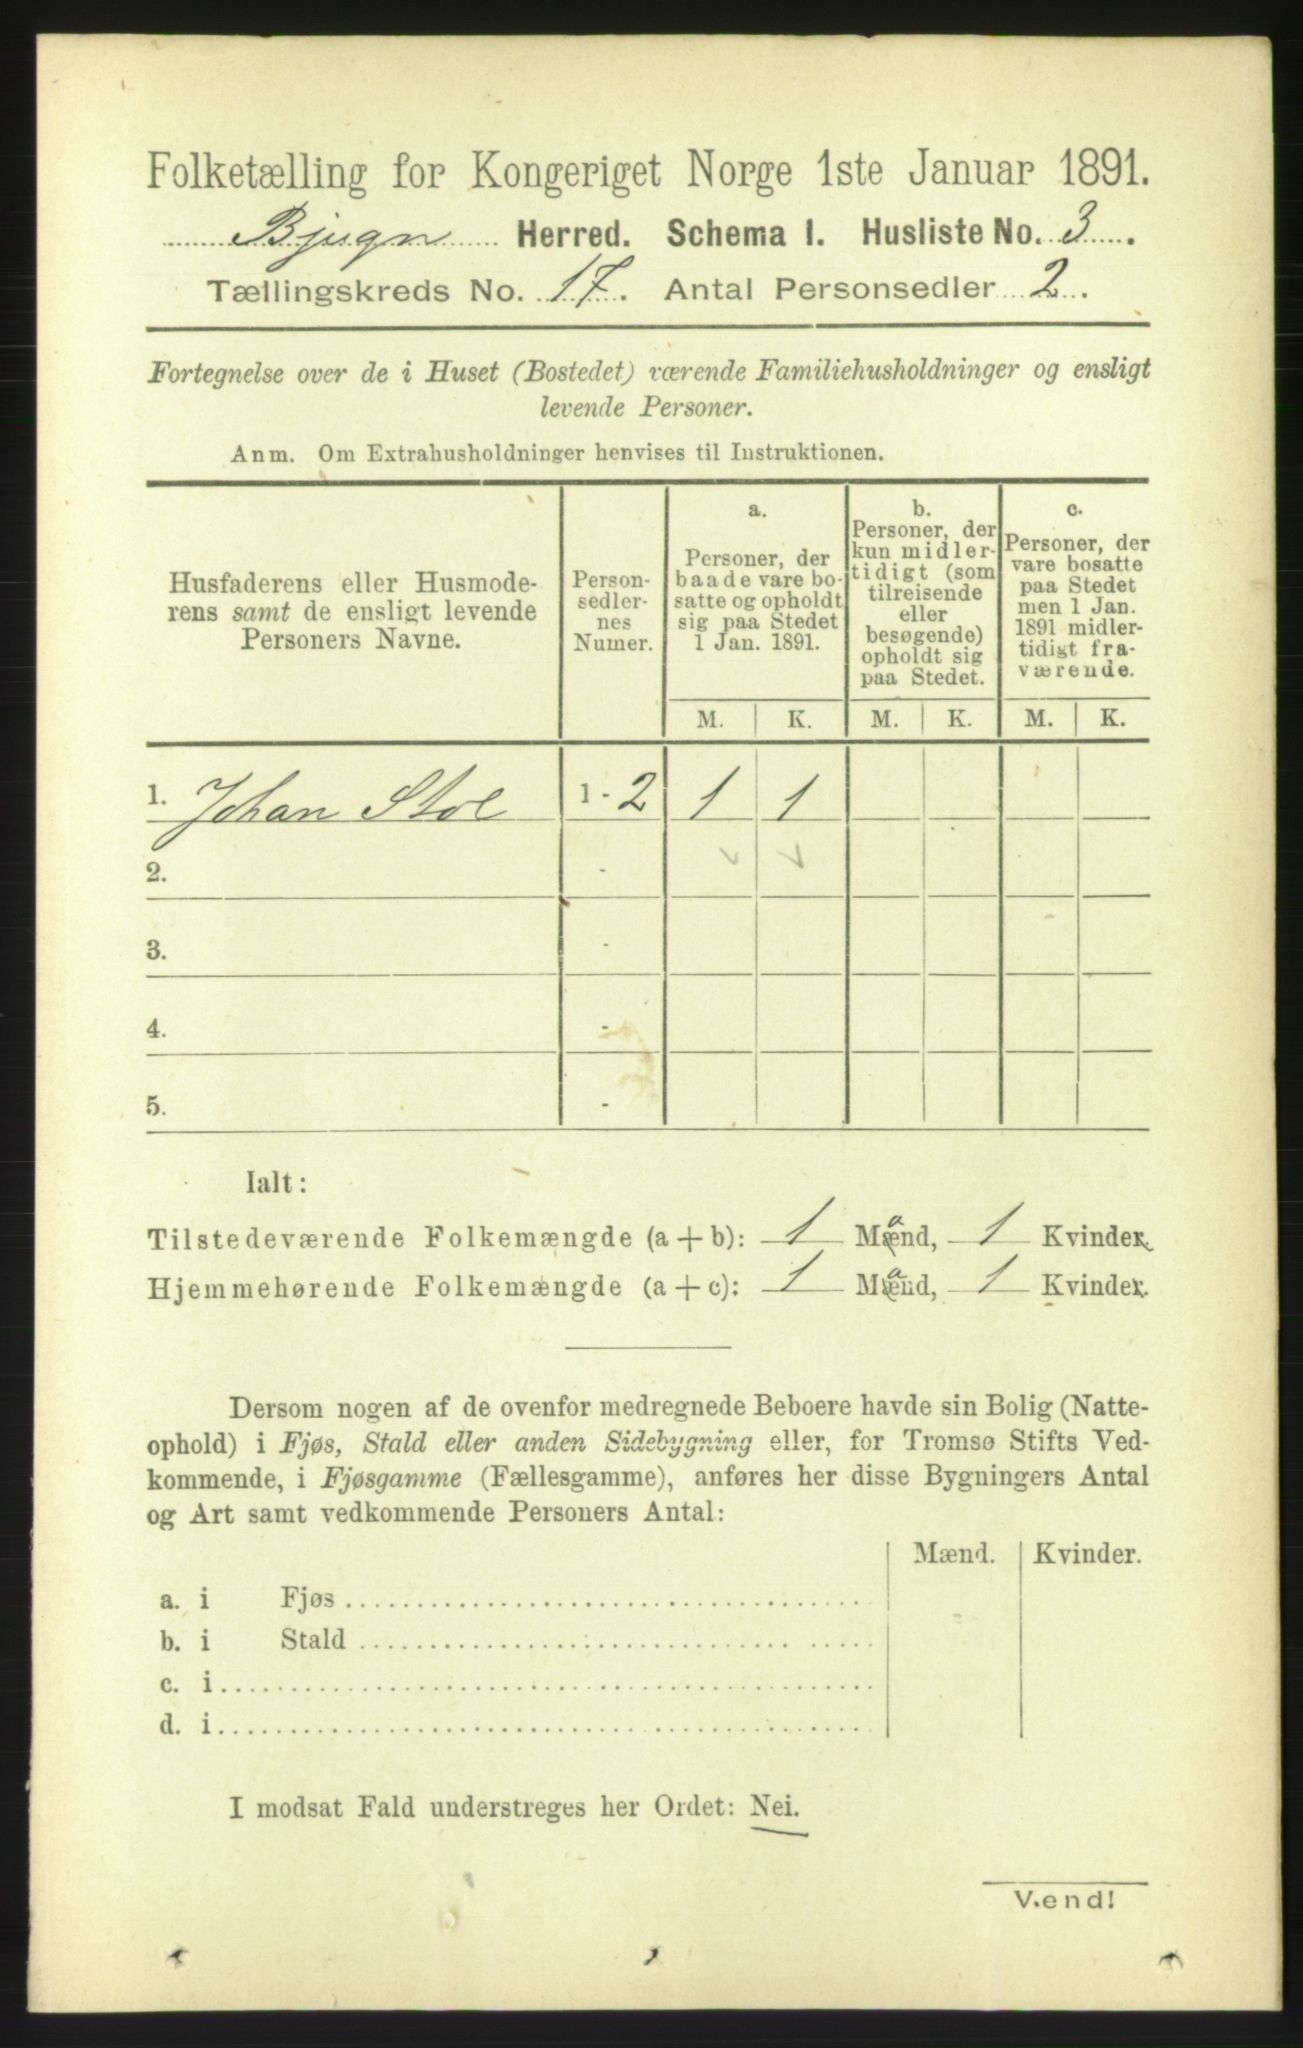 Folketælling for Kongeriget Norge 1ste Januar 1891.
Bjugn Herred. Schema I. Husliste No. 3.
Tællingskreds No. 17. Antal Personsedler 2.
Fortegnelse over de i Huset (Bostedet) værende Familiehusholdninger og ensligt
levende Personer.
Anm. Om Extrahusholdninger henvises til Instruktionen.
Husfaderens eller Husmode-
rens samt de ensligt levende
Personers Navne.
Person-
sedler-
nes
Numer.
a.
Personer, der
baade vare bo-
satte og opholdt
sig paa Stedet
1 Jan. 1891.
b.
Personer, der
kun midler-
tidigt (som
tilreisende
eller
besøgende)
opholdt sig
paa Stedet.
c.
Personer, der
vare bosatte
paa Stedet
men 1 Jan.
1891 midler-
tidigt fra-
værende.
M. K. M. K. M. K.
1. Johan Stol 1 - 2 1 1
2. -
3. -
4. -
5. -
Ialt:
Tilstedeværende Folkemængde (a + b): 1 Mand, 1 Kvinder
Hjemmehørende Folkemængde (a + c): 1 Mand, 1 Kvinder.
Dersom nogen af de ovenfor medregnede Beboere havde sin Bolig (Natte-
ophold) i Fjøs, Stald eller anden Sidebygning eller, for Tromsø Stifts Ved-
kommende, i Fjøsgamme (Fællesgamme), anføres her disse Bygningers Antal
og Art samt vedkommende Personers Antal:
Mænd. Kvinder.
a. i Fjøs
b. i Stald
c. i
d. i
I modsat Fald understreges her Ordet: Nei.
Vend!